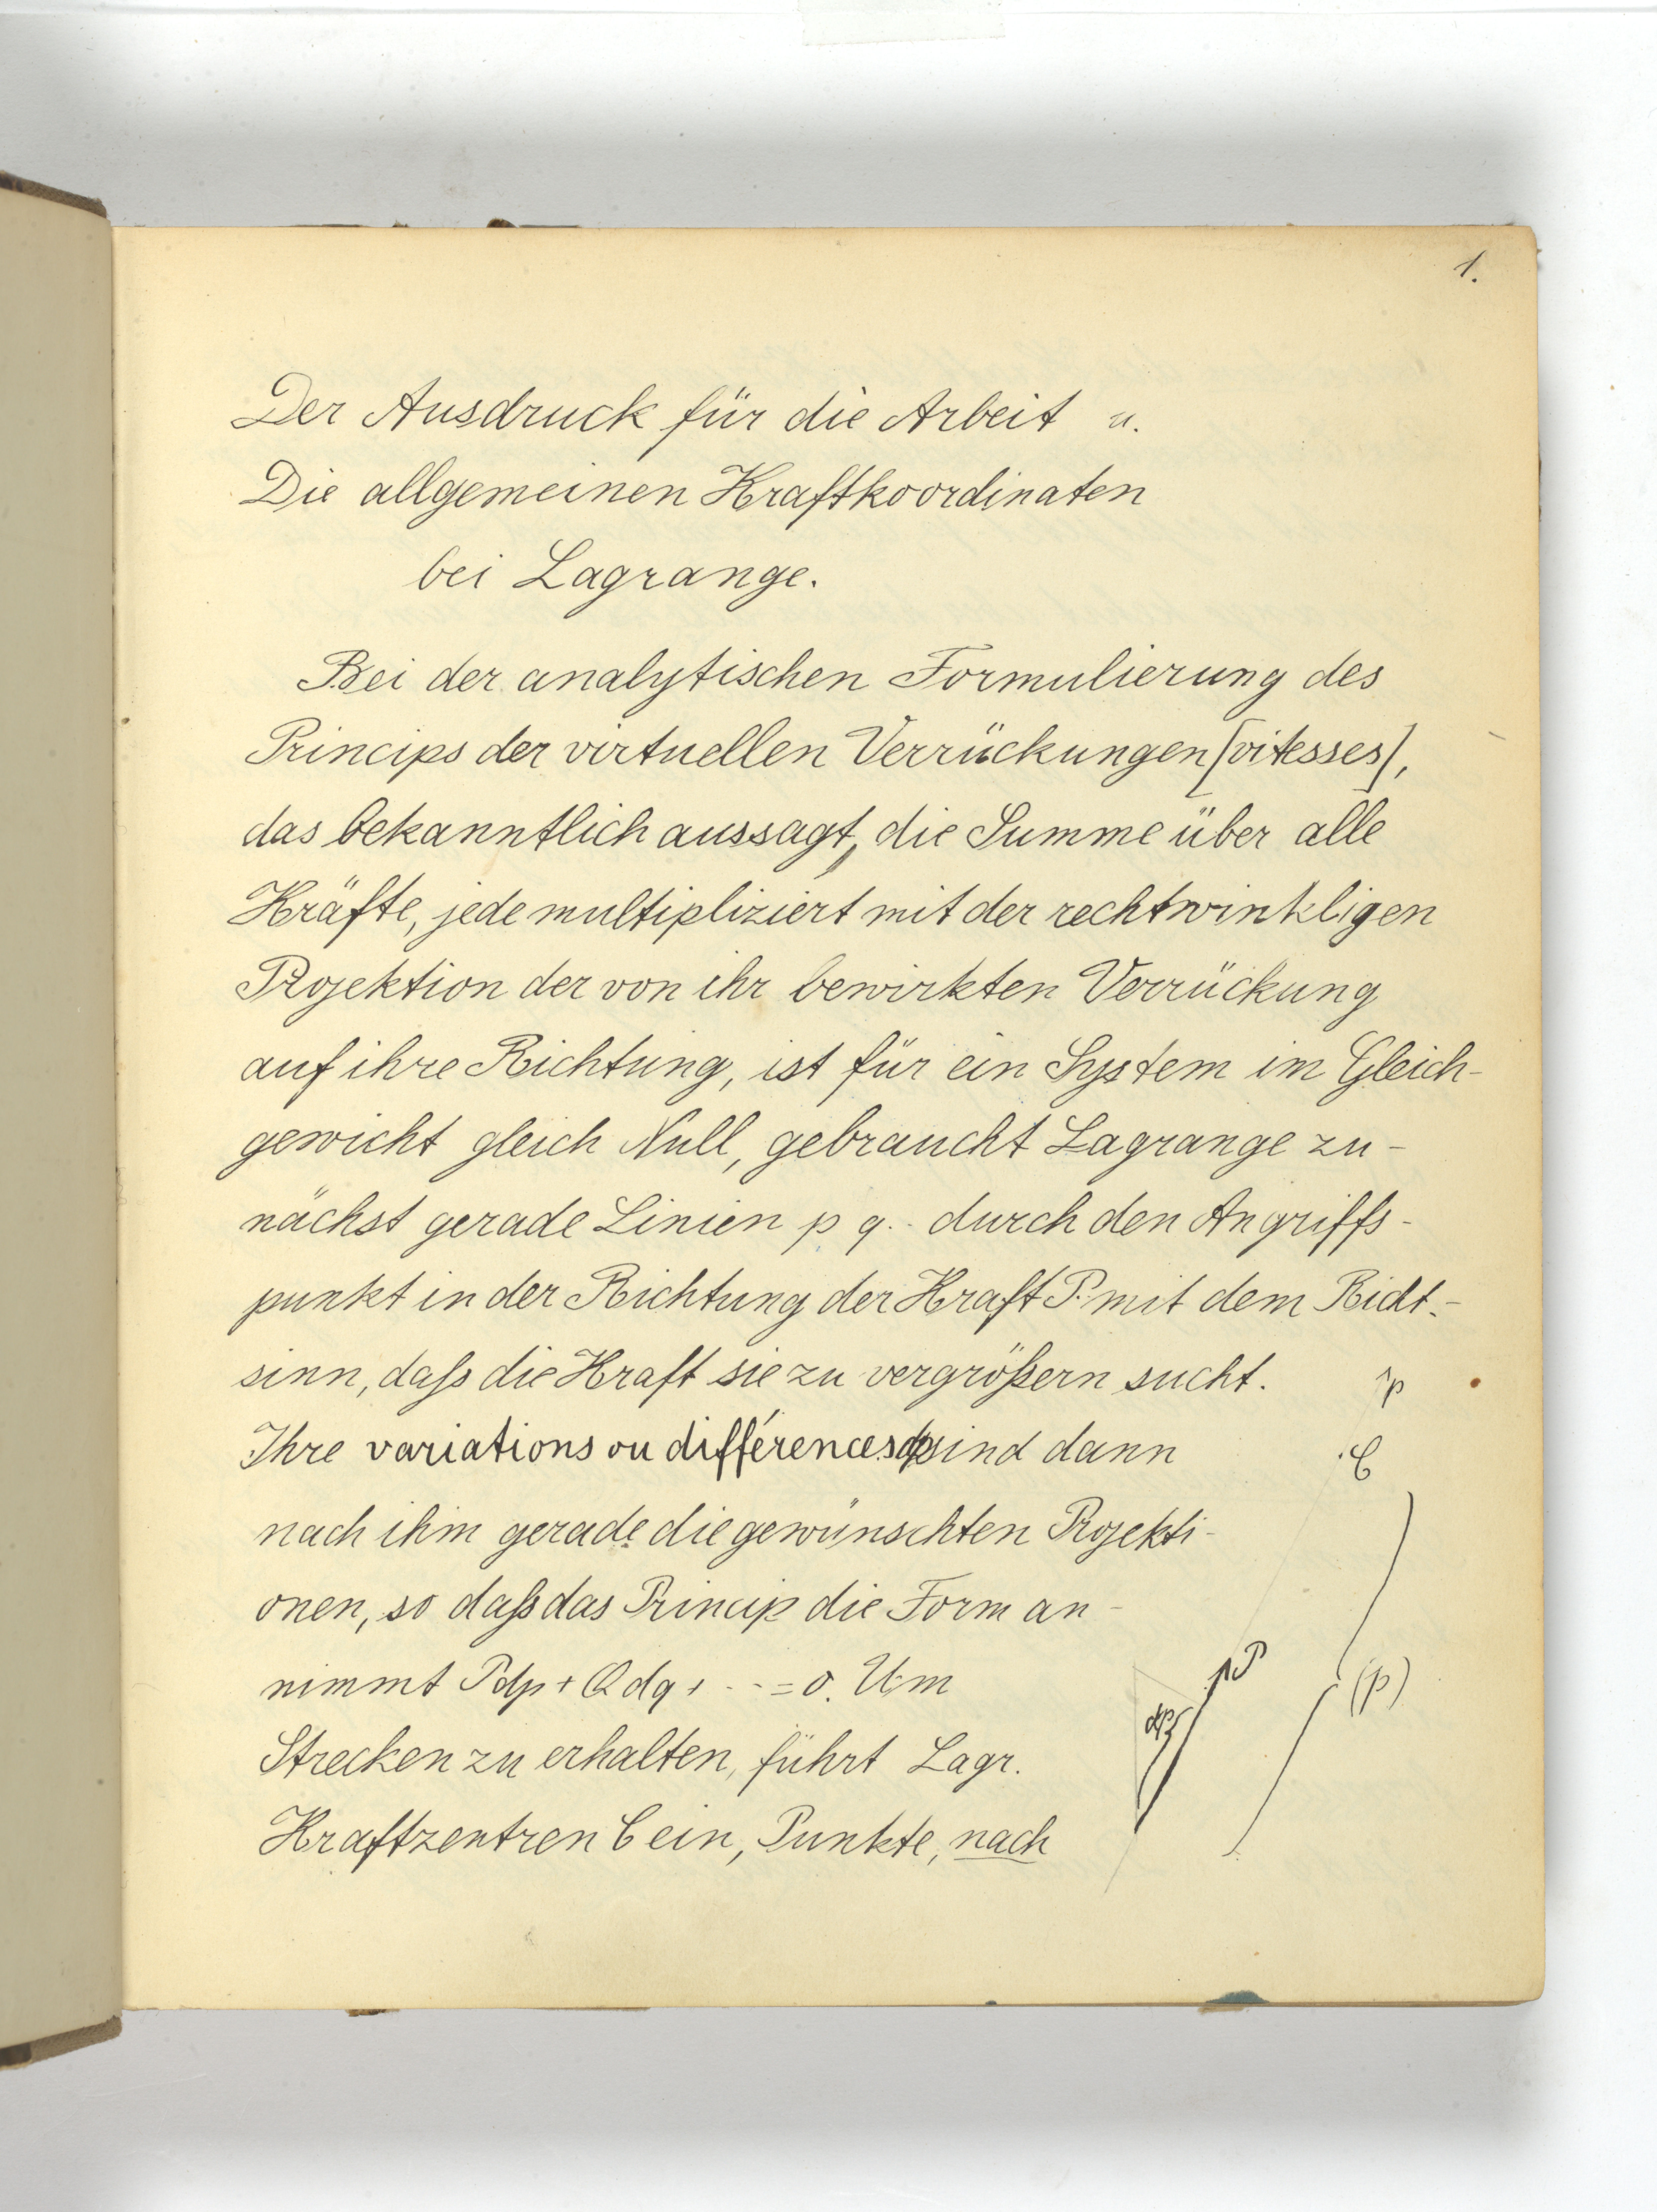 1.
Der Ausdruck für die Arbeit u.
Die allgemeinen Kraftkoordinaten
bei Lagrange.
Bei der analytischen Formulierung des
Princips der virtuellen Verrückungen [vitesses],
das bekanntlich aussagt, die Summe über alle
Kräfte, jede multipliziert mit der rechtwinkligen
Projektion der von ihr bewirkten Verrückung
auf ihre Richtung, ist für ein System im Gleich-
gewicht gleich Null, gebraucht Lagrange zu-
nächst gerade Linien p q.. durch den Angriffs-
punkt in der Richtung der Kraft P.. mit dem Richt.-
sinn, daß die Kraft sie zu vergrößern sucht.
Ihre variations ou différences dp sind dann
nach ihm gerade die gewünschten Projekti-
onen, so daß das Princip die Form an-
nimmt Pdp + Qdq + --- = 0. Um
Strecken zu erhalten, führt Lagr.
Kraftzentren C ein, Punkte, nach
p
C
P
dp
(p)